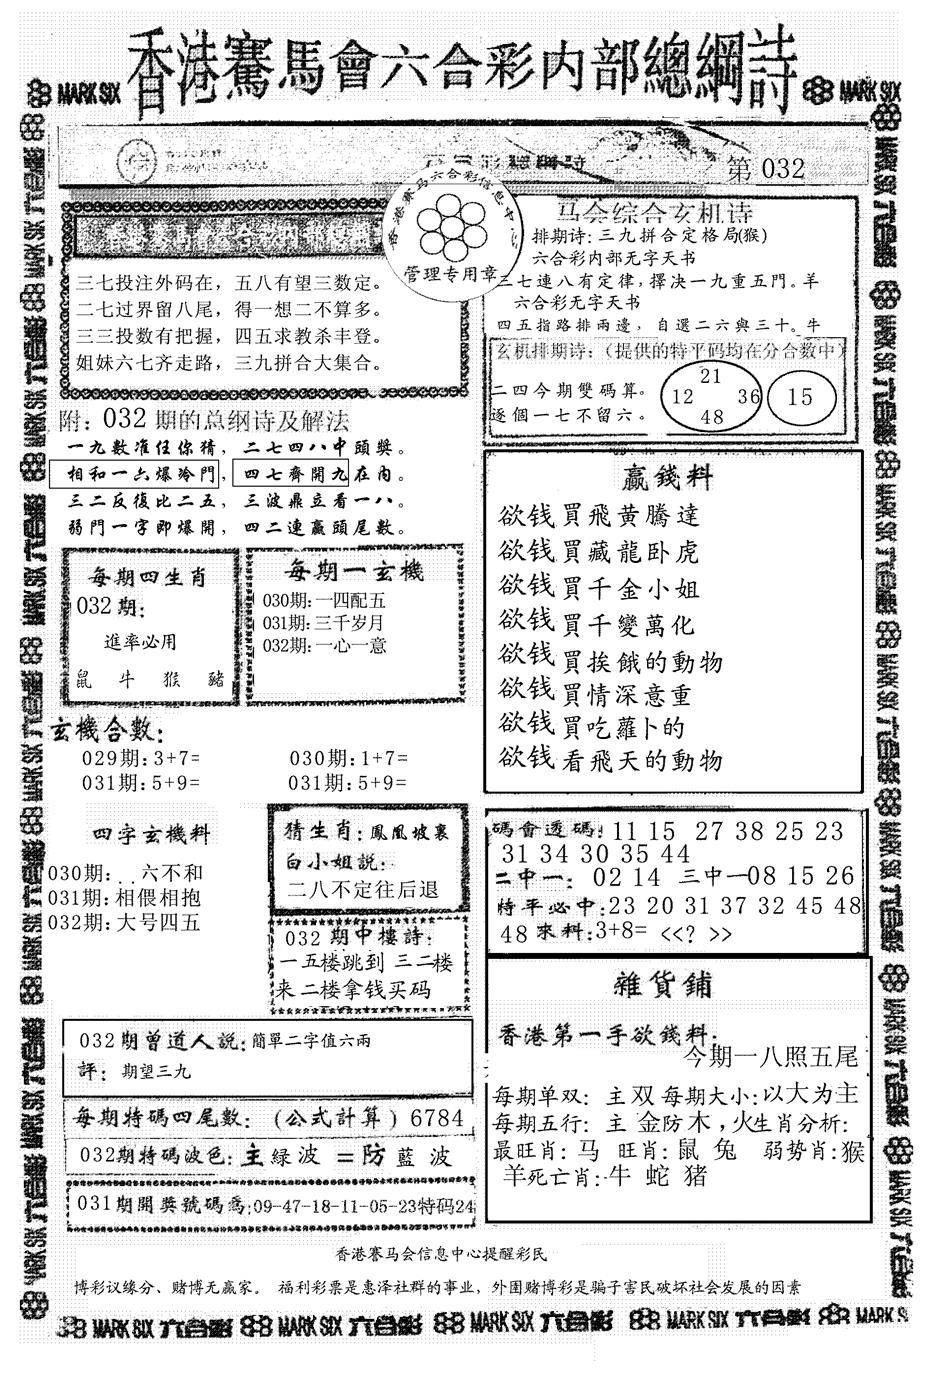 香港賽馬會六合彩内部總綱詩
MARK SIX
MARK SIX
第 032
香港赛马六合彩信息中
管理专用章
三七投注外码在，五八有望三数定。
二七过界留八尾，得一想二不算多。
三三投数有把握，四五求教杀丰登。
姐妹六七齐走路，三九拼合大集合。
马会综合玄机诗
排期诗: 三九拼合定格局(猴)
六合彩内部无字天书
三七連八有定律, 擇决一九重五門。羊
六合彩无字天书
四五指路排兩邊，自選二六與三十。牛
玄机排期诗:（提供的特平码均在分合数中）
二四今期雙碼算。
逐個一七不留六。
21
12 36
48
15
附: 032 期的总纲诗及解法
一九數准任你猜，二七四八中頭獎。
相和一六爆冷門，四七齊開九在内。
三二反復比二五，三波鼎立看一八。
弱門一字即爆開，四二連贏頭尾數。
每期四生肖
032期:
進率必用
鼠 牛 猴 豬
每期一玄機
030期:一四配五
031期:三千岁月
032期:一心一意
赢錢料
欲钱買飛黄騰達
欲钱買藏龍卧虎
欲钱買千金小姐
欲钱買千變萬化
欲钱買挨餓的動物
欲钱買情深意重
欲钱買吃蘿卜的
欲钱看飛天的動物
玄機合數:
029期:3+7= 030期:1+7=
031期:5+9= 031期:5+9=
四字玄機料
030期:..六不和
031期:相偎相抱
032期:大号四五
猜生肖: 鳳凰坡裏
白小姐説:
二八不定往后退
032 期中樓詩:
一五楼跳到 三二楼
来二楼拿钱买码
碼會透碼: 11 15 27 38 25 23
31 34 30 35 44
二中一: 02 14 三中一08 15 26
特平必中:23 20 31 37 32 45 48
48 來料:3+8= <<? >>
雜貨鋪
香港第一手欲錢料:
今期一八照五尾
每期单双: 主 双 每期大小:以大为主
每期五行: 主 金防木，火生肖分析:
最旺肖: 马 旺肖: 鼠 兔 弱势肖:猴
羊死亡肖:牛 蛇 猪
032期曾道人説:簡單二字值六兩
評: 期望三九
每期特碼四尾數:（公式計算）6784
032期特碼波色: 主緑波 =防藍波
031期開獎號碼爲:09-47-18-11-05-23特码24
香港賽马会信息中心提醒彩民
博彩议缘分、赌博无赢家。 福利彩票是惠泽社群的事业，外围赌博彩是骗子害民破坏社会发展的因素
MARK SIX 六合彩 MARK SIX 六合彩 MARK SIX 六合彩 MARK SIX 六合彩 MARK SIX